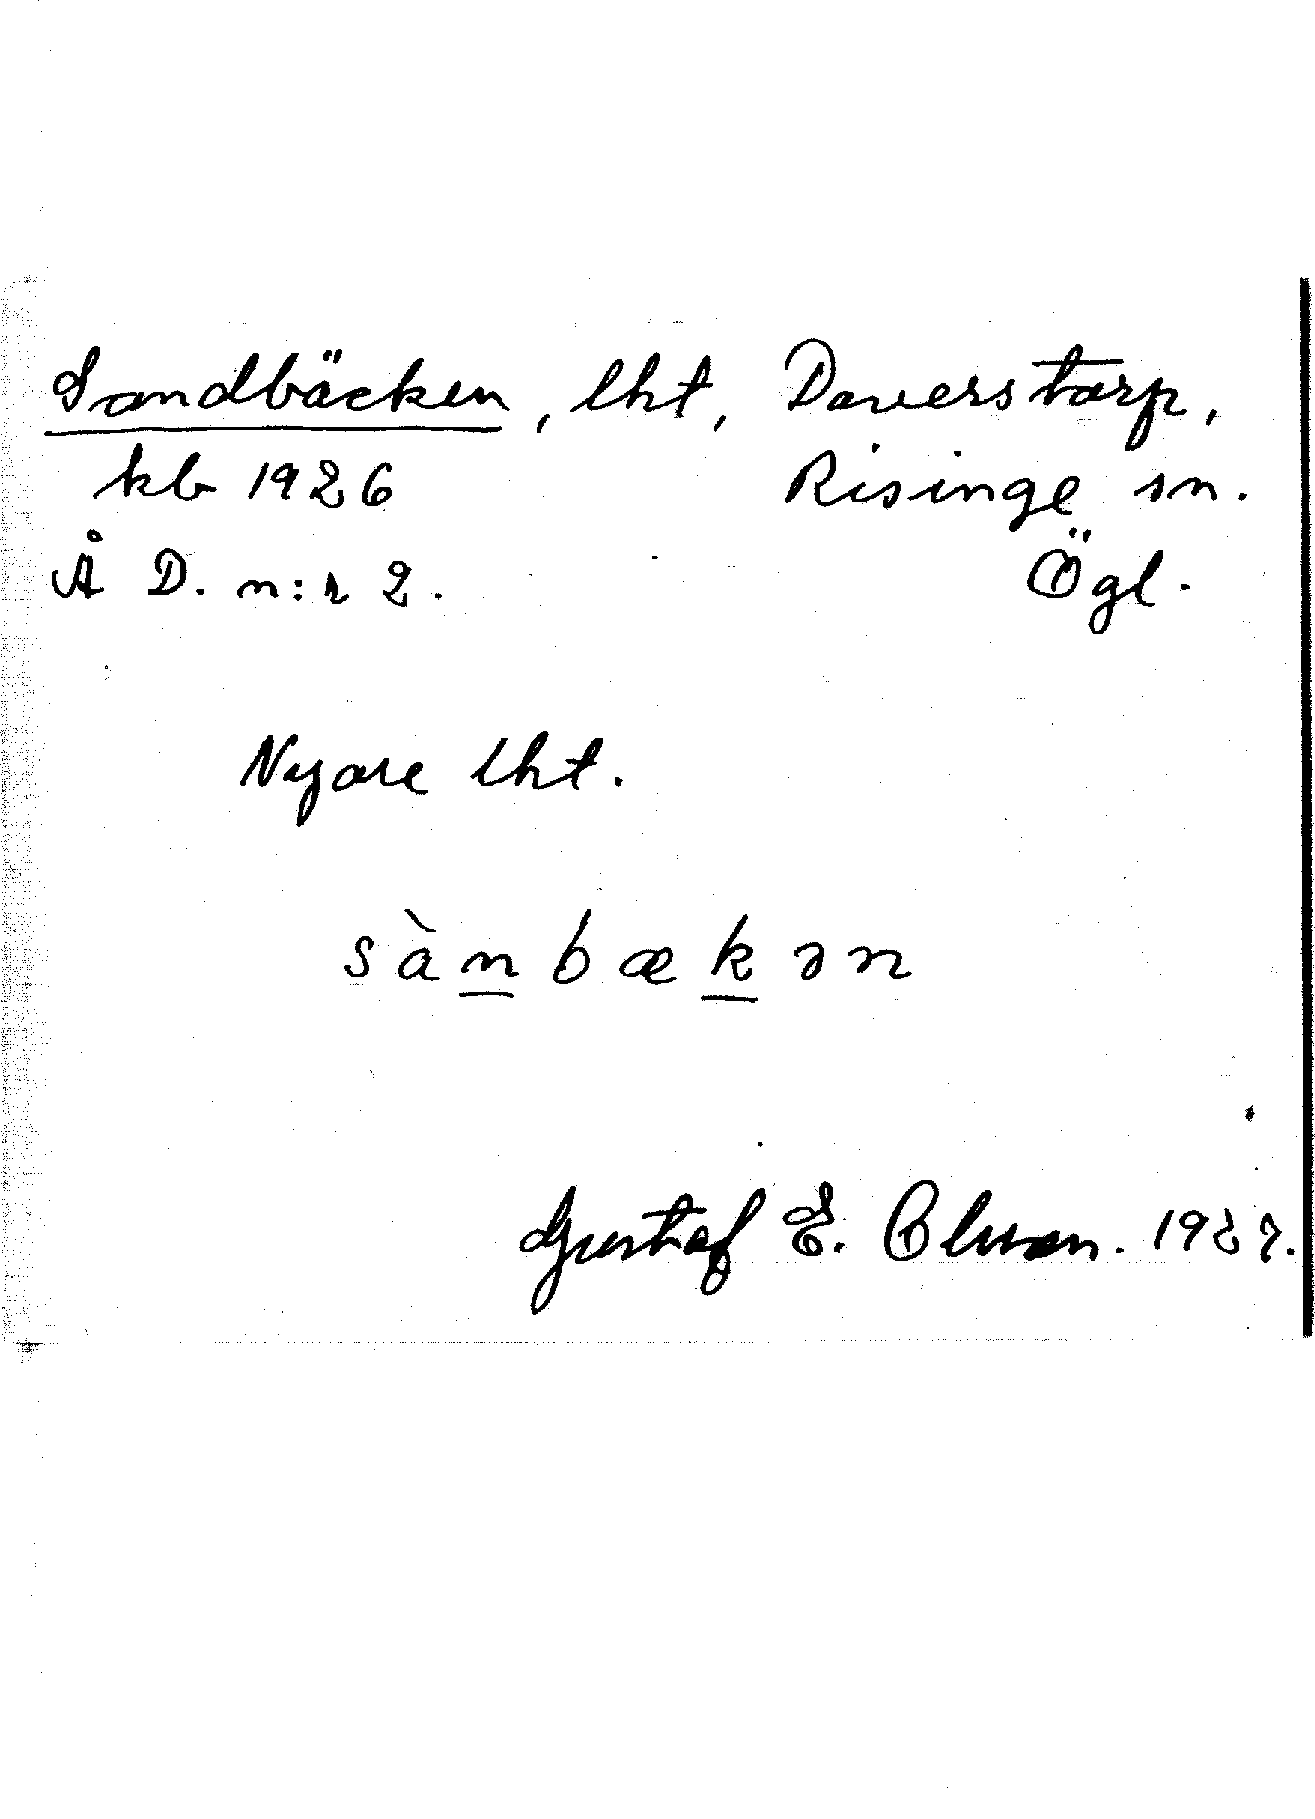 Sandbäcken, lht, Daverstorp,
kb 1926 Risinge sn.
Å D. n:r 2. Ögl.
Nyare lht.
sànbækən
Gustaf E. Olsson. 1927.